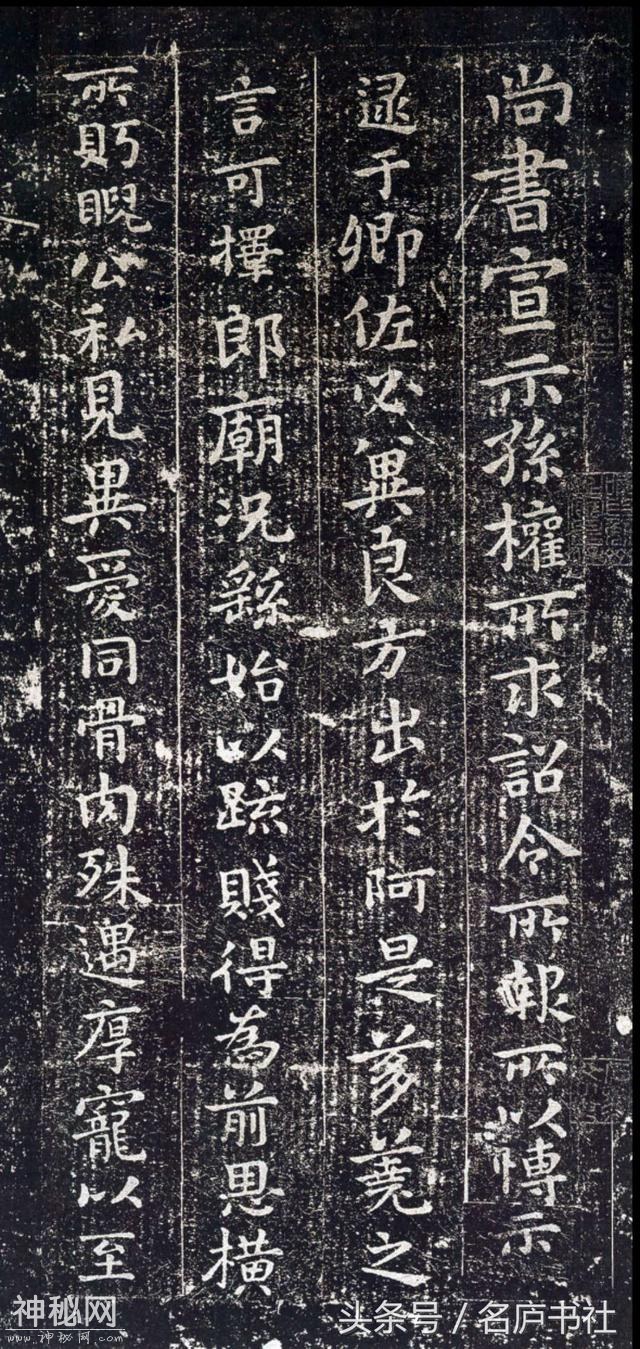 尚書宣示孫權所求詔令所報所以博示
逮于卿佐必冀良方出於阿是芻蕘之
言可擇郎廟況繇始以疏賤得為前恩橫
所眄睨公私見異愛同骨肉殊遇厚寵以至
神秘网
www.神秘网.com
头条号/名庐书社